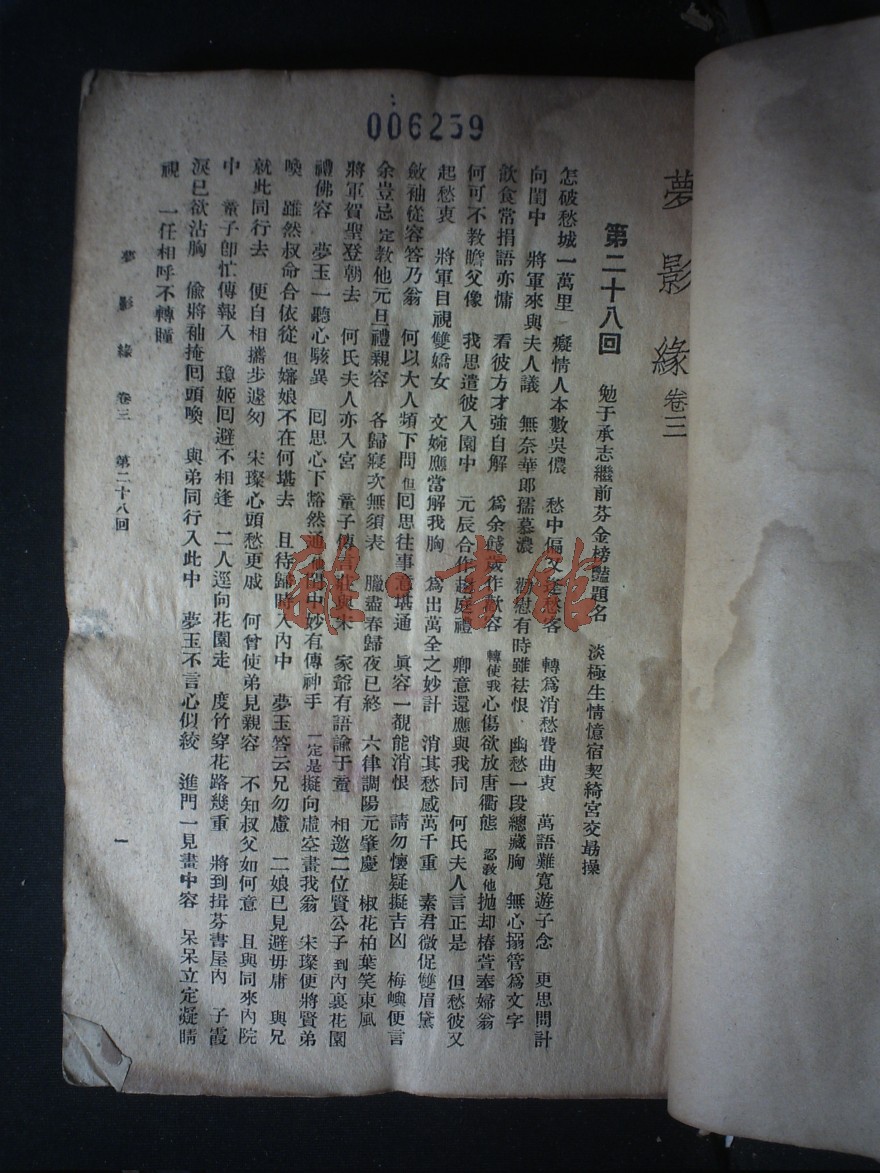 006259
夢影緣 卷三
第二十八回 勉于承志繼前芬金榜豔題名 淡極生情憶宿契綺宮交勗操
怎破愁城一萬里 癡情人本數吳儂 愁中偏又逢愁客 轉爲消愁費曲衷 萬語難寬遊子念 更思問計
向閨中 將軍來與夫人議 無奈華郎孺慕濃 勸慰有時雖袪恨 幽愁一段總藏胸 無心搦管爲文字
飲食常捐語亦慵 看彼方才強自解 爲余餞歲作歡容 轉使我心傷欲放唐衢態 忍教他抛却椿萱奉婦翁
何可不教瞻父像 我思遣彼入園中 元辰合作趨庭禮 卿意還應與我同 何氏夫人言正是 但愁彼又
起愁衷 將軍目視雙嬌女 文婉應當解我胸 爲出萬全之妙計 消其愁感萬千重 素君微促雙眉黛
斂袖從容答乃翁 何以大人頻下問 但囘思往事意堪通 眞容一覩能消恨 請勿懷疑擬吉凶 梅嶼便言
余豈忌 定教他元旦禮親容 各歸寢次無須表 臘盡春歸夜已終 六律調陽元肇慶 椒花柏葉笑東風
將軍賀聖登朝去 何氏夫人亦入宮 童子傳言莊與宋 家爺有語諭于童 相邀二位賢公子 到內裏花園
禮佛容 夢玉一聽心駭異 囘思心下豁然通 閨中妙有傳神手 一定是擬向虛空畫我翁 宋璨便將賢弟
喚 雖然叔命合依從 但嬸娘不在何堪去 且待歸時入內中 夢玉答云兄勿慮 二娘已見避毋庸 與兄
就此同行去 便自相攜步遽匆 宋璨心頭愁更戚 何曾使弟見親容 不知叔父如何意 且與同來內院
中 童子卽忙傳報入 瓊姬囘避不相逢 二人逕向花園走 度竹穿花路幾重 將到揖芬書屋內 子霞
淚已欲沾胸 偸將袖掩囘頭喚 與弟同行入此中 夢玉不言心似絞 進門一見畫中容 呆呆立定凝睛
視 一任相呼不轉瞳
夢影緣 卷三 第二十八回 一
雜·書館